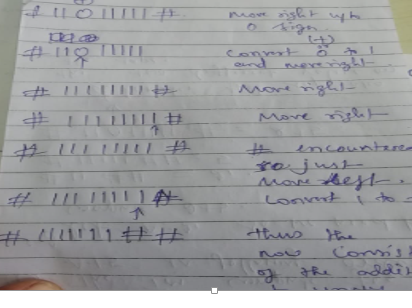 # 11011111 # Move right upto
0 sign
(+)
# 11011111 Convert 0 to 1
and move right.
# 11111111 # Move right
# 11111111 # Move right
# 11111111 # # encountered
so just
Move left.
# 11111111 # Convert 1 to
# 1111111 # # thus the
now consis
of the addit